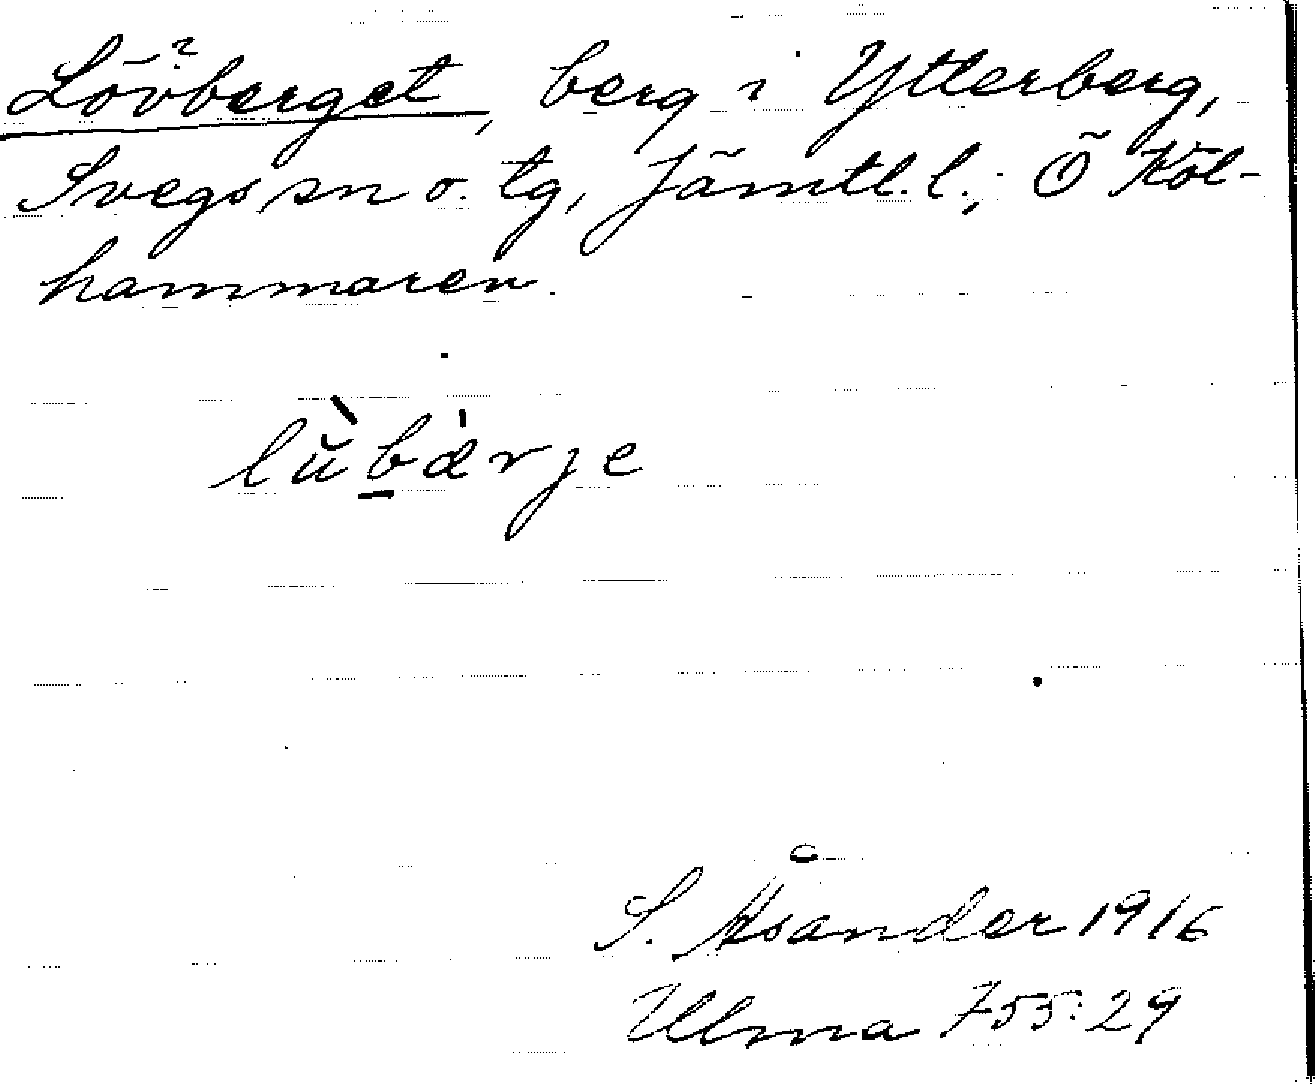 Lövberget, berg i Ytterberg,
Svegs sn o. tg, Jämtl. l.; Ö Köl-
hammaren.
lŭ̀bàrje
S. Åsander 1916
Ulma 755:29